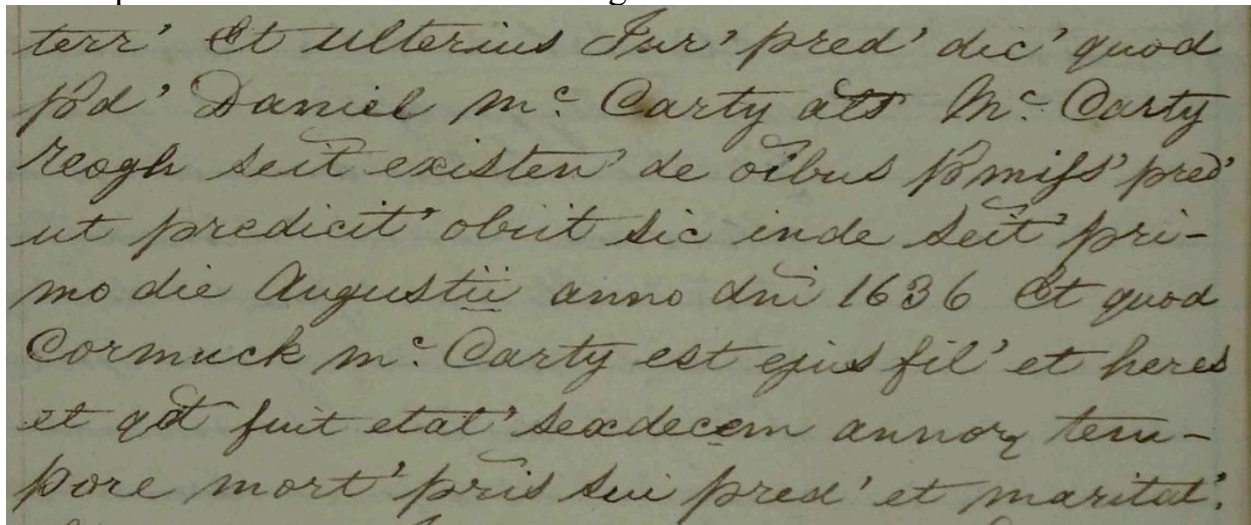 terr' Et ulterius Jur' pred' dic' quod
p̄d' Daniel Mc. Carty als Mc. Carty
reogh seit existen' de oibus p̄miss' pred'
ut predicit' obiit sic inde seit' pri-
mo die Augustii anno dni 1636 Et quod
Cormuck Mc. Carty est ejus fil' et heres
et qd fuit etat' sexdecem annoꝝ tem-
pore mort' pris sui pred' et maritat'.